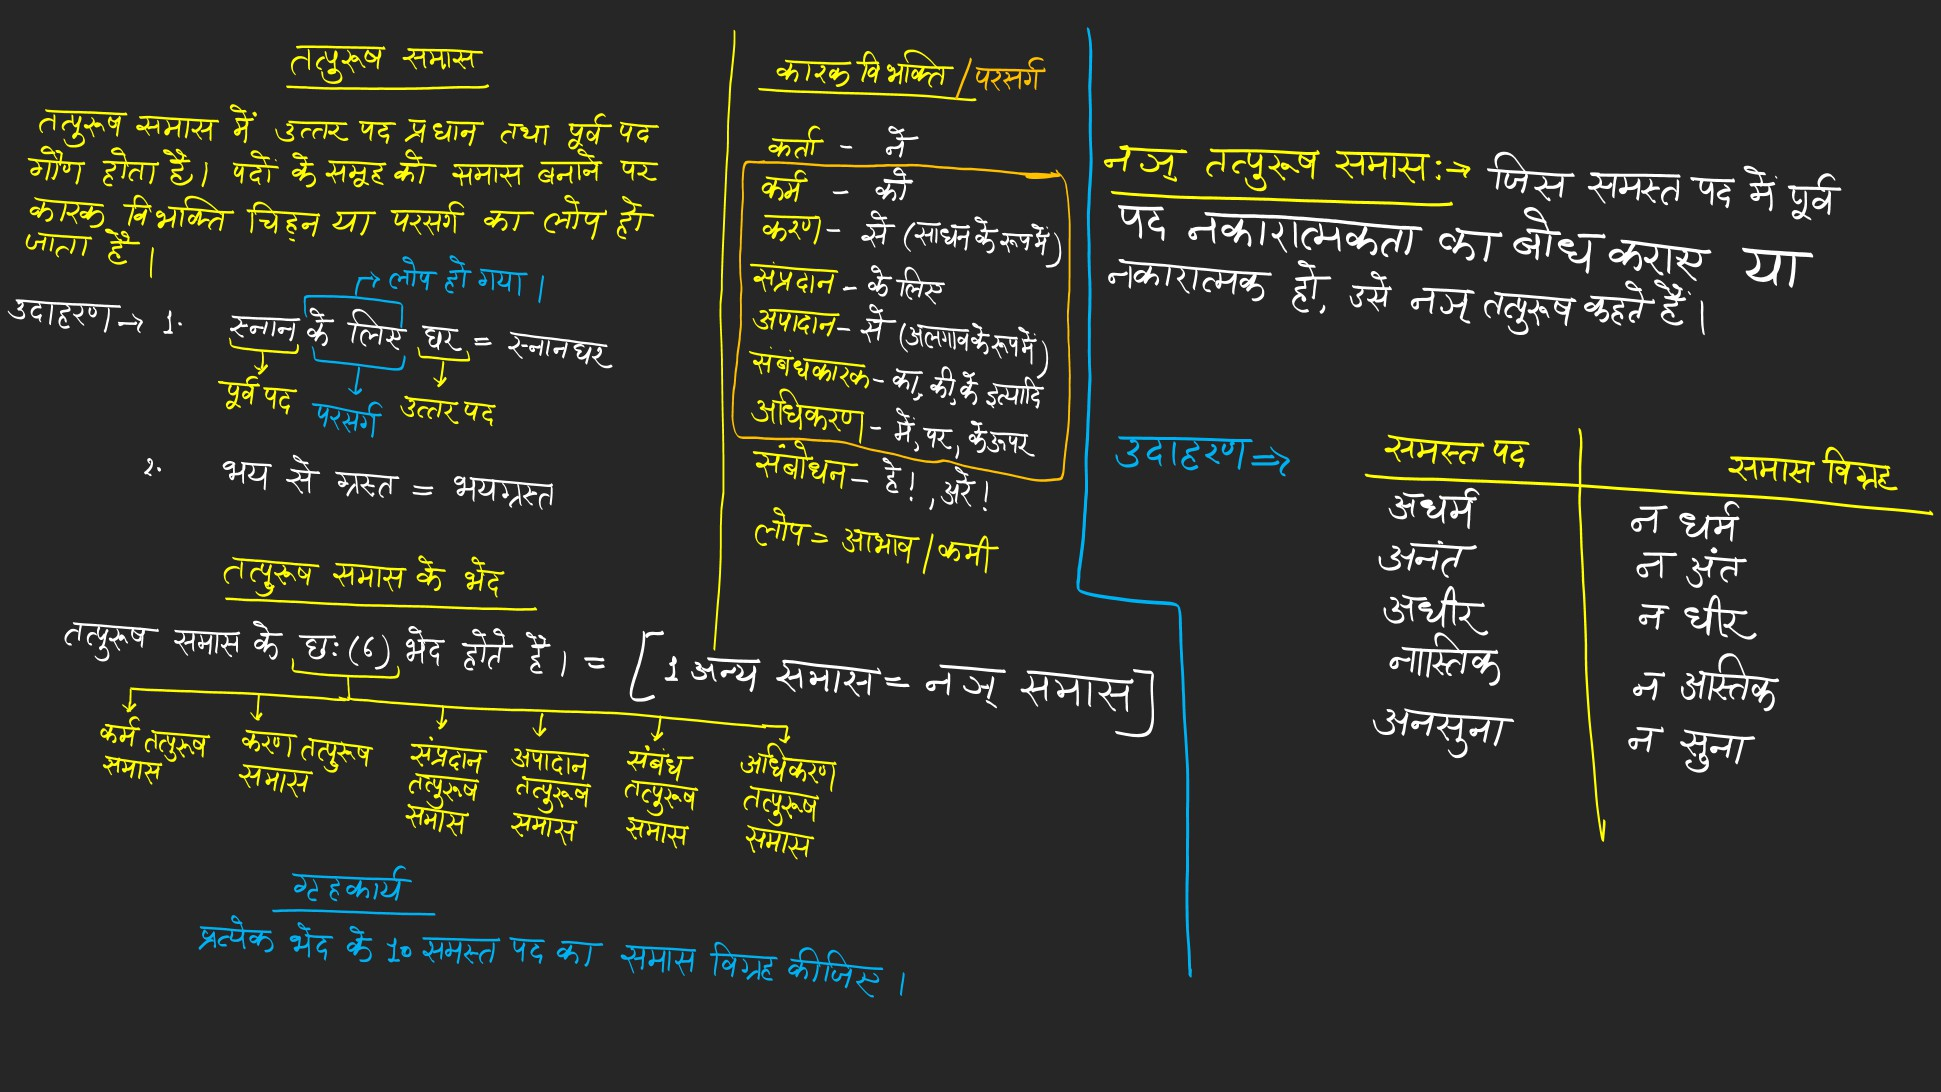 तत्पुरूष समास
तत्पुरूष समास में उत्तर पद प्रधान तथा पूर्व पद
गौण होता है। पदों के समूह को समास बनाने पर
कारक विभक्ति चिह्न या परसर्ग का लोप हो
जाता है।
→ लोप हो गया।
उदाहरण → 1. स्नान के लिए घर = स्नानघर
पूर्व पद परसर्ग उत्तर पद
2. भय से ग्रस्त = भयग्रस्त
तत्पुरूष समास के भेद
तत्पुरूष समास के छः (6) भेद होते है। = [1 अन्य समास = नञ् समास]
कर्म तत्पुरूष समास
करण तत्पुरूष समास
संप्रदान तत्पुरूष समास
अपादान तत्पुरूष समास
संबंध तत्पुरूष समास
अधिकरण तत्पुरूष समास
गृहकार्य
प्रत्येक भेद के 10 समस्त पद का समास विग्रह कीजिए।
कारक विभक्ति / परसर्ग
कर्ता - ने
कर्म - को
करण - से (साधन के रूप में)
संप्रदान - के लिए
अपादान - से (अलगाव के रूप में)
संबंधकारक - का, की, के इत्यादि
अधिकरण - में, पर, के ऊपर
संबोधन - हे!, अरे!
लोप = आभाव / कमी
नञ् तत्पुरूष समास :→ जिस समस्त पद में पूर्व
पद नकारात्मकता का बोध कराए या
नकारात्मक हो, उसे नञ् तत्पुरूष कहते हैं।
उदाहरण ⇒
समस्त पद समास विग्रह
अधर्म न धर्म
अनंत न अंत
अधीर न धीर
नास्तिक न अस्तिक
अनसुना न सुना